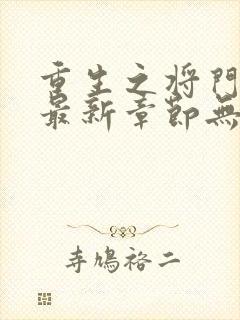 重生之将門
最新章節無
寺鳩裕二